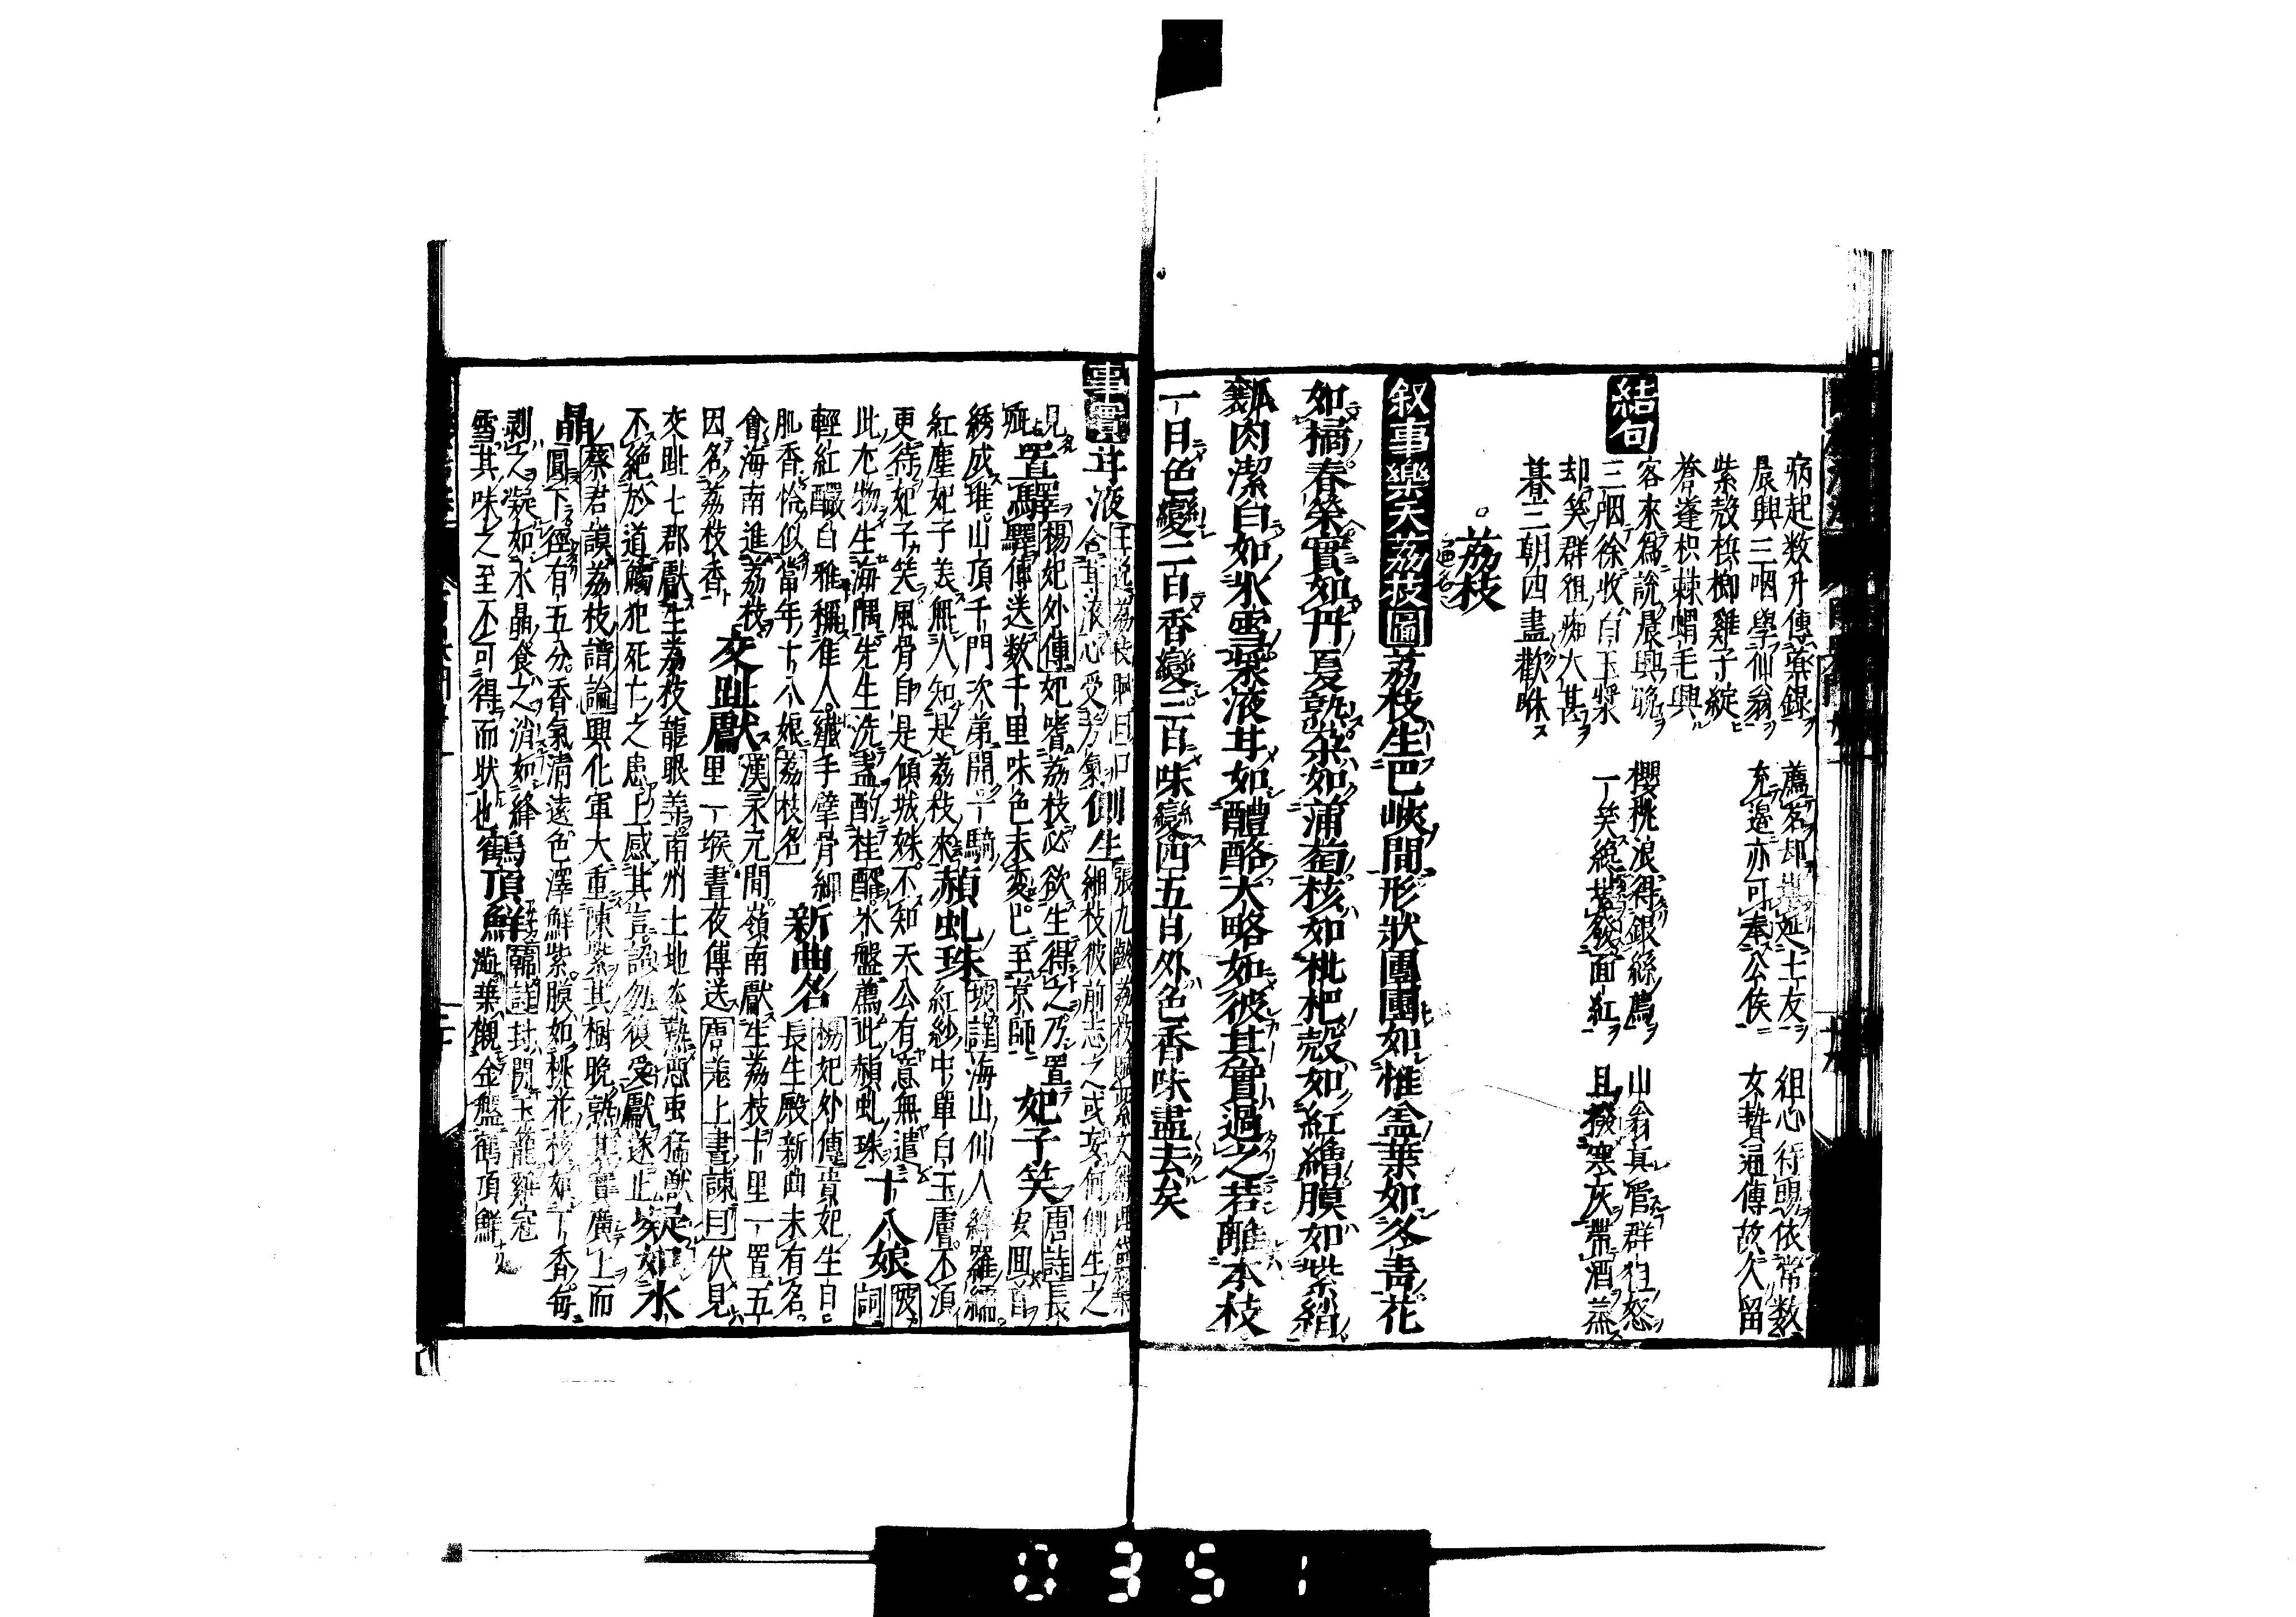 病起数升傳藥録 薦茗却 士友 組心行賜依常数
晨興三咽學仙翁 充邊亦可奉公侯 女贄逼傳故久留
紫殼檳榔雞子綻
蒼蓬枳棘蝟毛興
結句
客來爲説晨興晩 櫻桃浪得銀絲薦 山翁真管群狙怒
三咽徐收白玉漿 一笑 面紅 且撥寒灰帶酒
却笑群狙痴大甚
暮三朝四盡歡
荔枝
叙事樂天荔枝圖荔枝生巴峽間形状團團如惟盖葉如冬青花
如橘春榮實如丹夏熟朶如蒲萄核如枇杷殼如紅繒膜如紫綃
瓤肉潔白如氷雪漿液甘如醴酪大略如彼其實過之若離本枝
一日色變二日香變三日味變四五日外色香味盡去矣
事實甘液 側生張九齡荔枝賦
含甘液心受芳氣 緗枝彼前志之或妄何側生之
見 楊妃外傳妃嗜荔枝必欲生得之乃置 唐詩長
疵置驛驛傳送数千里味色未変已至京師妃子笑安回
綉成堆山頂千門次第開一騎 坡詩海山仙人絳羅襦
紅塵妃子笑無人知是荔枝來赬虬珠紅紗中單白玉膚不湏
更待妃子笑風骨自是傾城姝不知天公有意無遣 坡
此尤物生海隅先生洗盞酌桂醑氷盤薦此赬虬珠十八娘詞
輕紅釅白雅稱佳人纎手擘骨細 楊妃外傳貴妃生日
肌香恰似當年十八娘荔枝名新曲名長生殿新曲未有名
會海南進荔枝 漢永元間嶺南獻生荔枝十里一置五
因名荔枝香交趾獻里一堠晝夜傳送唐羌上書諫曰伏見
交趾七郡獻生荔枝龍眼等南州土地炎熱悪虫猛獸
不絶於道觸犯死亡之患上感其言詔勿復受獻遂止凝如水
晶蔡君謨荔枝譜論興化軍大重陳紫其樹晩熟其實廣上而
圓下徑有五分香氣清遠色澤鮮紫膜如桃花核如丁香毎
剥之凝如水晶食之消如絳 韓詩封開玉籠雞冠
雪其味之至不可得而状也鶴頂鮮 葉襯金盤鶴頂鮮
0351